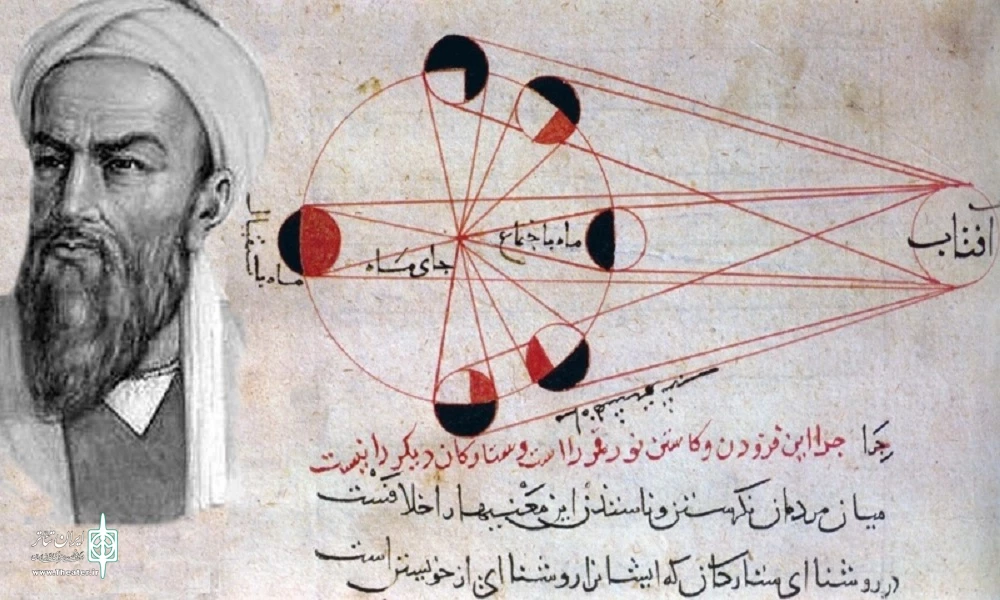 افتاب
ماه باجتماع
جای ماه
ماه باستقبال
چرا این فزودن وکاستن نور قمر را است وستارکان دیکر را نیست
میان مردمان نکرستن این معنیها را خلافست
در روشنای ستارکان که ایشانرا روشنای از خویشتن است
ایران تئاتر
www.Theater.ir